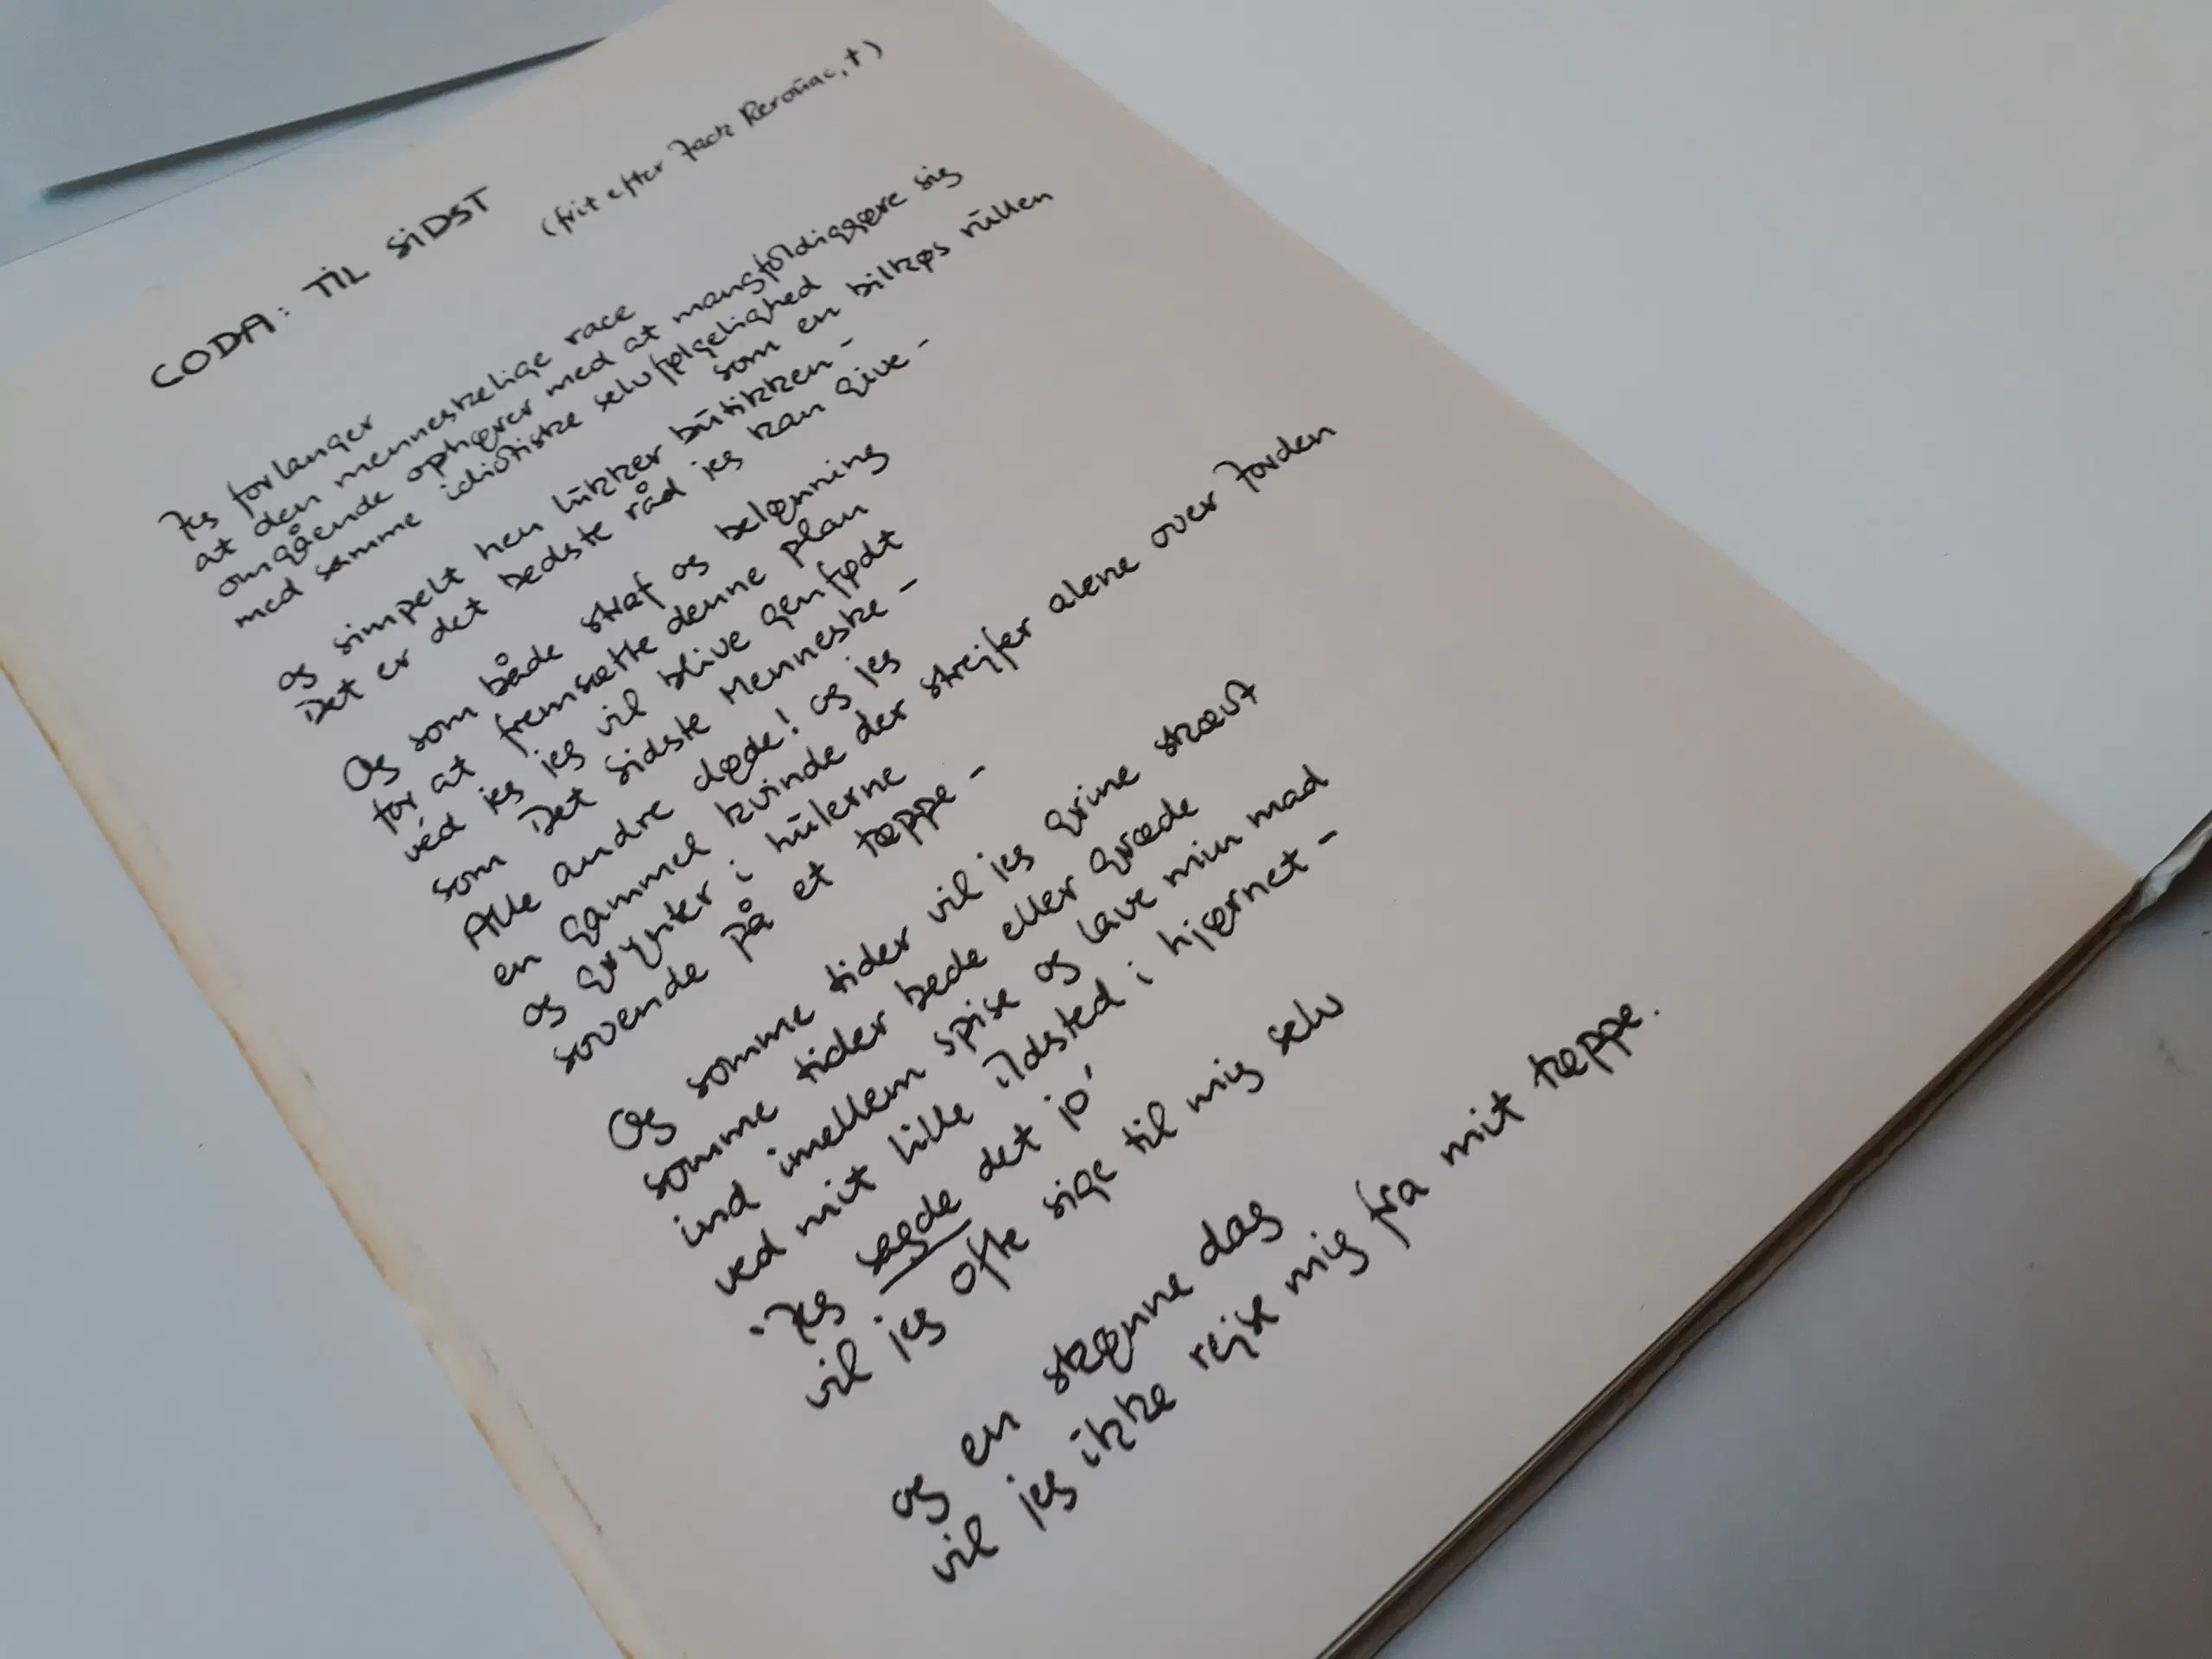 CODA: TIL SIDST
(frit efter Jack Kerouac, †)
Jeg forlanger
at den menneskelige race
omgående ophører med at mangfoldiggøre sig
med samme idiotiske selvfølgelighed
som en bilkøs rullen
og simpelt hen lukker butikken –
Det er det bedste råd jeg kan give –
Og som både straf og belønning
for at fremsætte denne plan
véd jeg jeg vil blive genfødt
som Det sidste Menneske –
Alle andre døde! og jeg
en gammel kvinde der strejfer alene over Jorden
og grynter i hulerne
sovende på et tæppe –
Og somme tider vil jeg grine skævt
somme tider bede eller græde
ind imellem spise og lave min mad
ved mit lille ildsted i hjørnet –
'Jeg sagde det jo'
vil jeg ofte sige til mig selv
og en skønne dag
vil jeg ikke rejse mig fra mit tæppe.